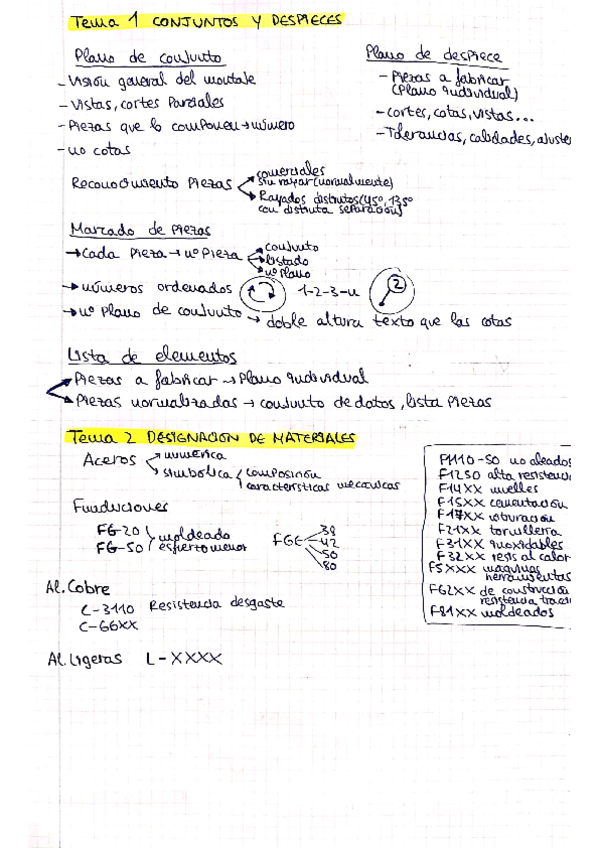 Tema 1 CONJUNTOS Y DESPIECES
Plano de conjunto
- Visión general del montaje
- Vistas, cortes Parciales
- Piezas que lo componen → número
- no cotas
Plano de despiece
- Piezas a fabricar
(Plano individual)
- cortes, cotas, vistas...
- Tolerancias, calidades, ajuste
Reconocimiento Piezas
comerciales
sin rayar (normalmente)
Rayados distintos (45º, 135º
con distinta separación)
Marcado de Piezas
→ cada Pieza → nº Pieza
conjunto
listado
nº Plano
→ números ordenados 1-2-3-n 2
→ nº Plano de conjunto → doble altura texto que las cotas
Lista de elementos
Piezas a fabricar → Plano individual
Piezas normalizadas → conjunto de datos, lista Piezas
Tema 2 DESIGNACION DE MATERIALES
Aceros
numérica
simbólica
composición
características mecánicas
Fundiciones
FG-20
FG-50
moldeado
esfuerzo menor
FGE
38
42
50
80
Al. Cobre
C-3110 Resistencia desgaste
C-66XX
Al. Ligeras L-XXXX
F1110-50 no aleados
F1250 alta resistenci
F14XX muelles
F15XX cementación
F17XX nituración
F21XX tornillería
F31XX inoxidables
F32XX resis al calor
F5XXX máquinas
herramientas
F62XX de construcción
resistencia tracci
F81XX moldeados